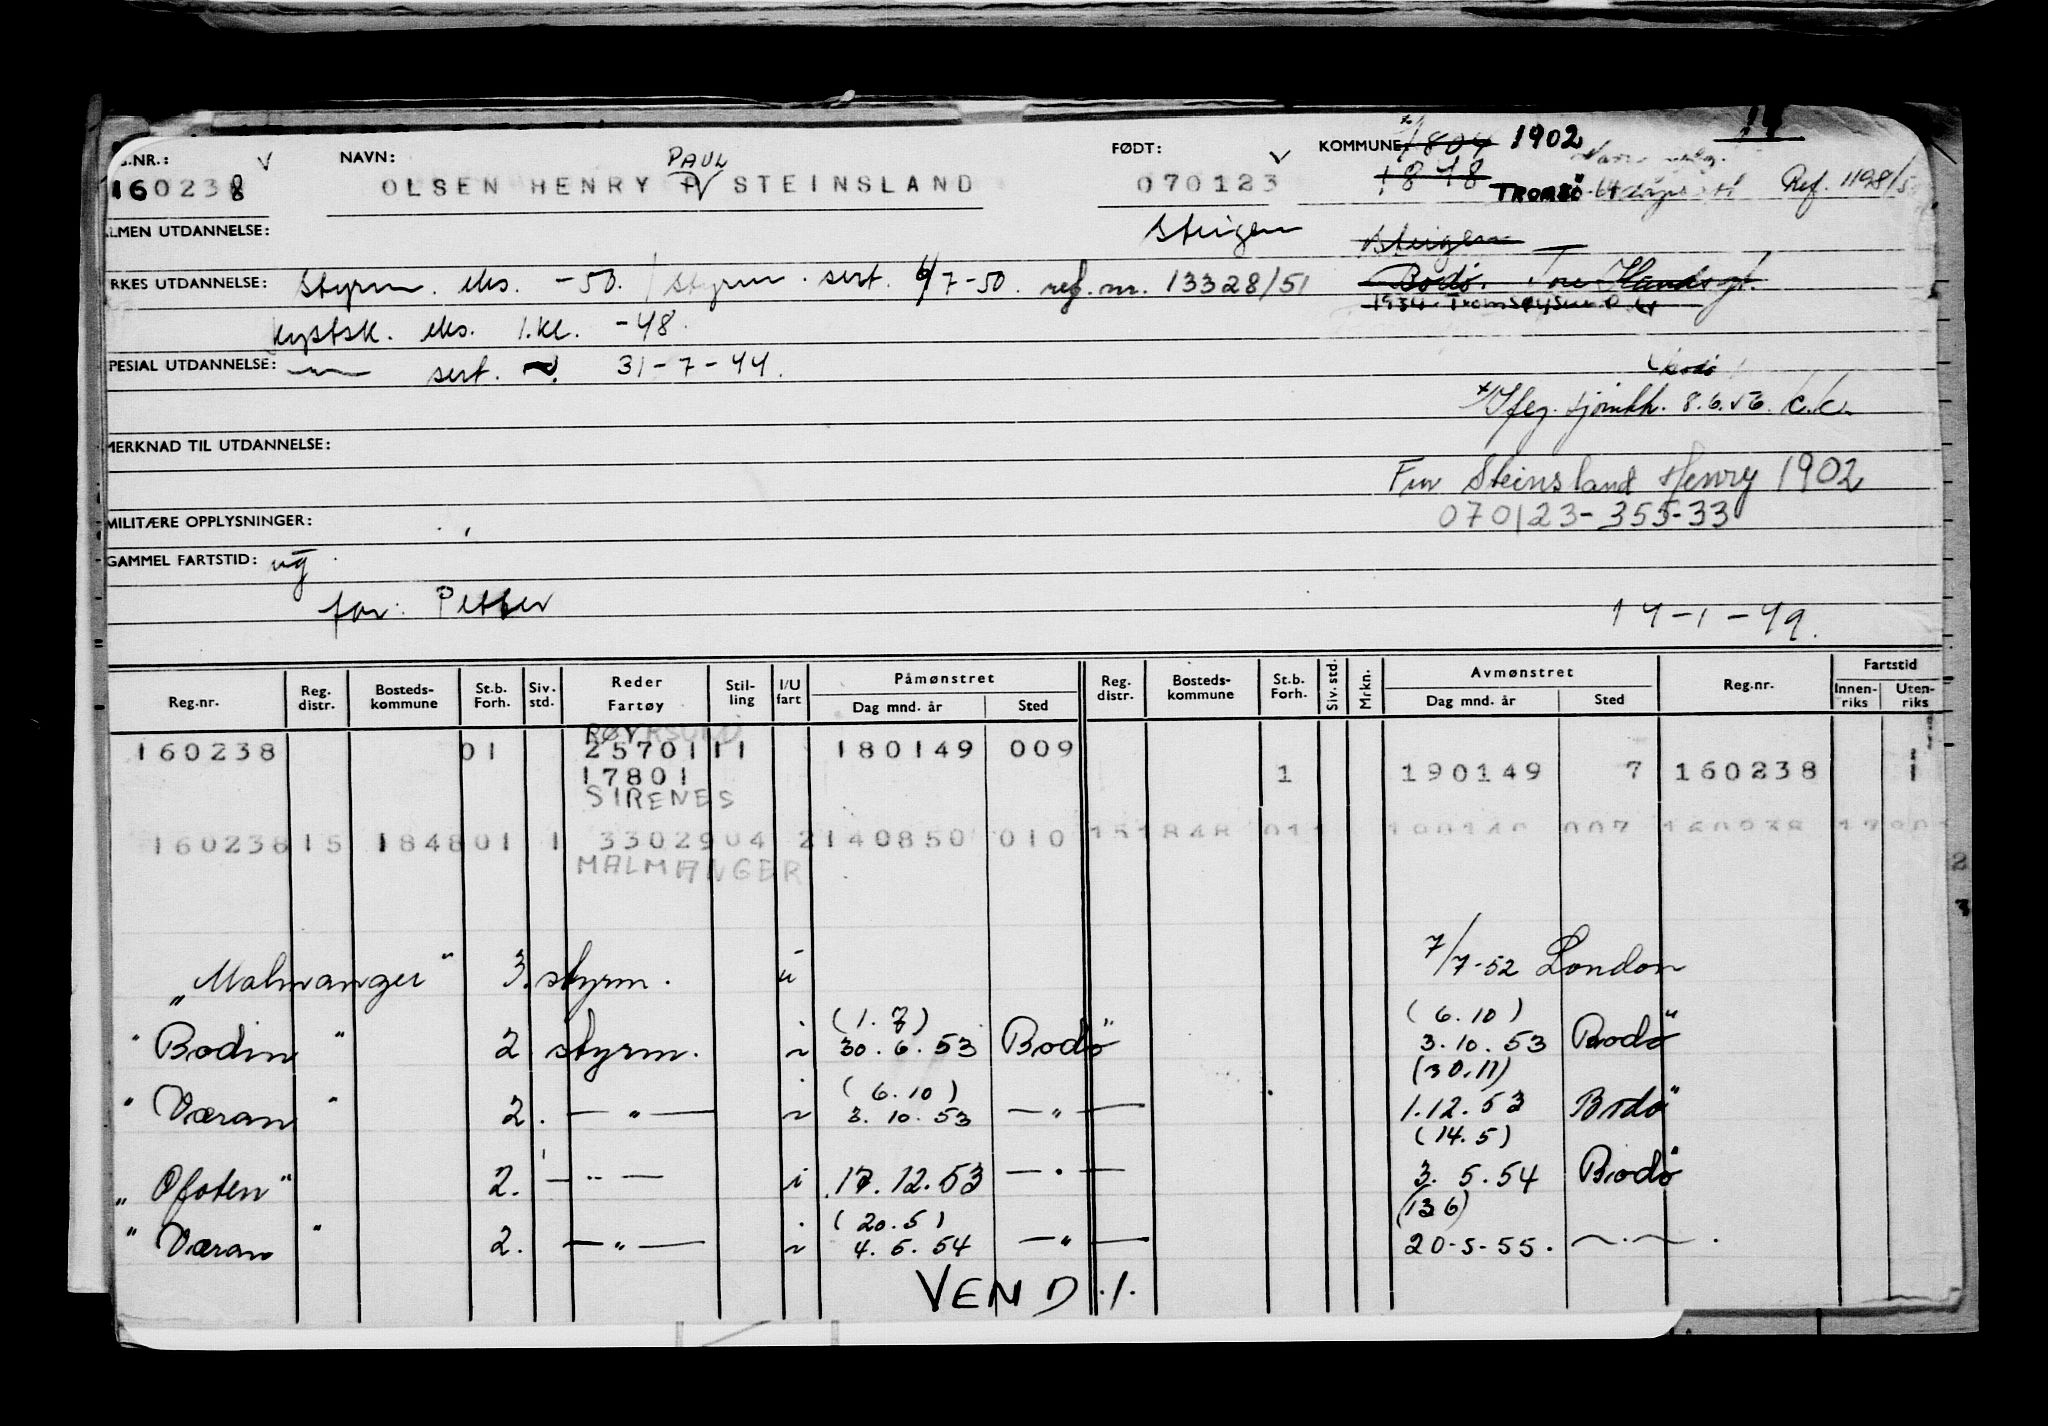 .NR.: V NAVN: PAUL FØDT: V KOMMUNE: 1804 1902
160238 OLSEN HENRY P STEINSLAND 070123 1848 TROMSØ Ref. 1198/5
LMEN UTDANNELSE: Steigen Steigen
RKES UTDANNELSE: Styrm. eks. -50. / Styrm. sert. 6/7-50. ref. nr. 13328/51 Bodø.
kystsk. eks. 1.kl. -48.
PESIAL UTDANNELSE: sert. 31-7-44. Bodø
8.6.56.
MERKNAD TIL UTDANNELSE:
Steinsland Henry 1902
070123-355-33
MILITÆRE OPPLYSNINGER:
GAMMEL FARTSTID: ug
far: Petter 14-1-49.
Reg.nr. Reg. distr. Bosteds-kommune St.b. Forh. Siv. std. Reder Fartøy Stil-ling I/U fart Påmønstret Dag mnd. år Sted Reg. distr. Bosteds-kommune St.b. Forh. Siv. std. Mrkn. Avmønstret Dag mnd. år Sted Reg.nr. Fartstid Innen-riks Uten-riks
RØYRSUND
160238 01 25701 11 180149 009
17801 1 190149 7 160238 1
SIRENES
160238 15 1848 01 1 3302904 2 140850 010
MALMANGER
"Malmanger" 3. styrm. u 7/7-52 London
(1.7) (6.10)
"Bodin" 2 styrm. i 30.6.53 Bodø 3.10.53 Bodø
(6.10) (30.11)
"Væran" 2. —"— i 3.10.53 —"— 1.12.53 Bodø
(14.5)
"Ofoten" 2. —"— i 17.12.53 —"— 3.5.54 Bodø
(20.5) (13.6)
"Væran" 2. —"— i 4.5.54 —"— 20-5-55.
VEND ./.